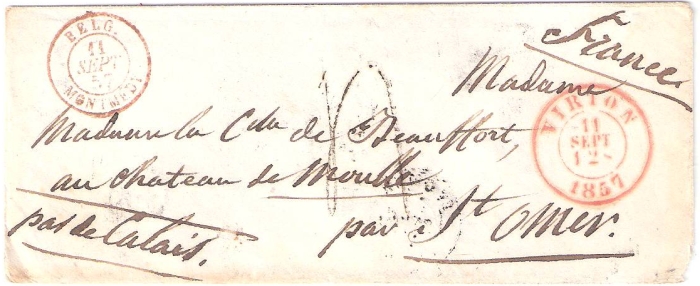 France
BELG.
11
SEPT
57
MONTMEDY
Madame
VIRTON
11
SEPT
12S
1857
Madame la Ctsse de Beauffort,
au chateau de Moulle
pas de Calais.
par St Omer.